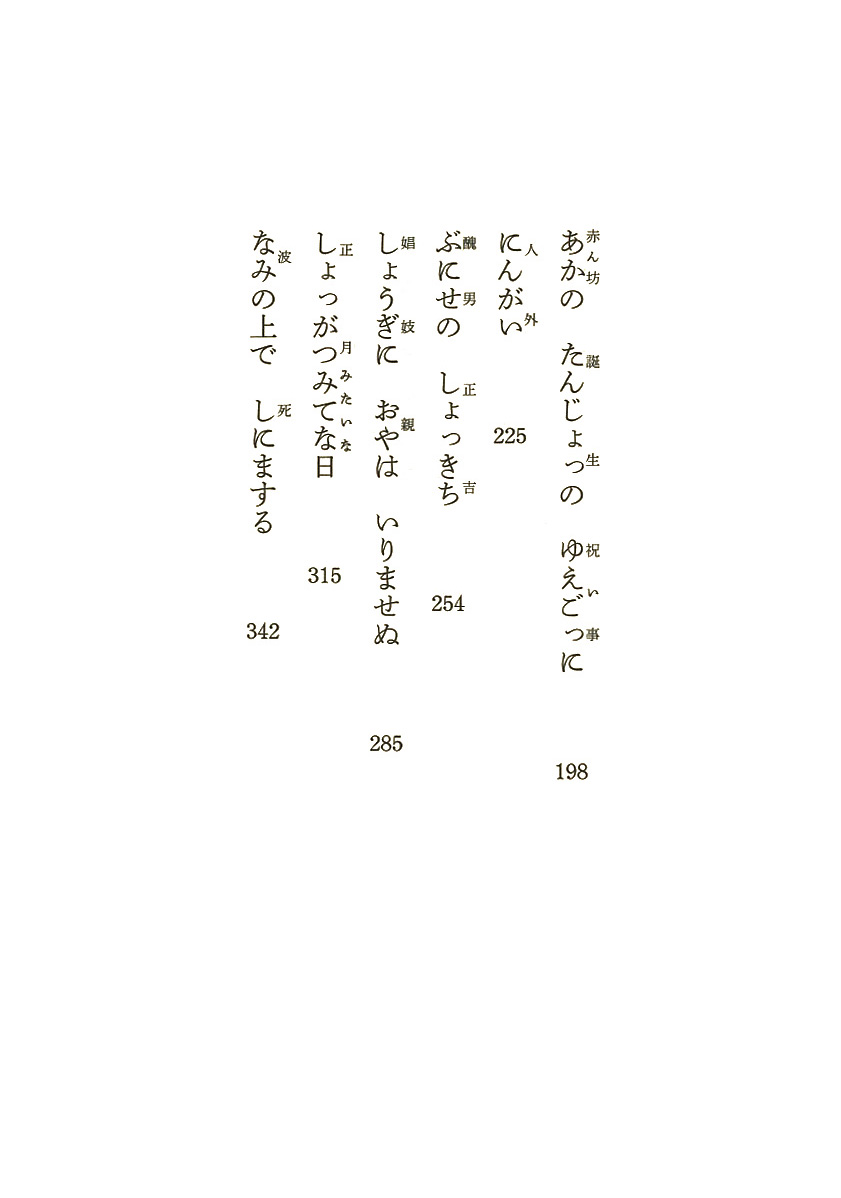 あかの　たんじょっの　ゆえごっに　198
にんがい　225
ぶにせの　しょっきち　254
しょうぎに　おやは　いりませぬ　285
しょっがつみてな日　315
なみの上で　しにまする　342
赤ん坊　誕生　祝い事
人外
醜男　正吉
娼妓　親
正月みたいな
波　死